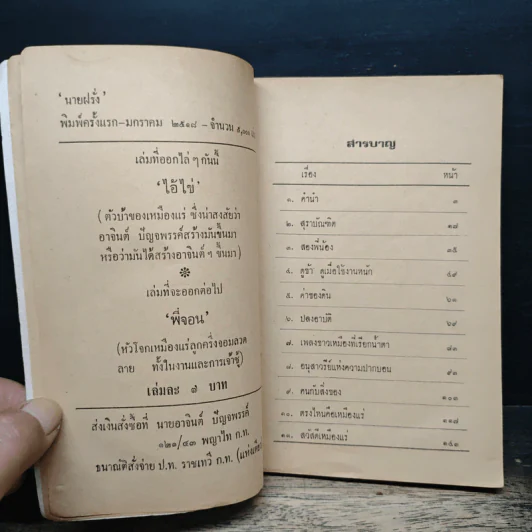 'นายฝรั่ง'
พิมพ์ครั้งแรก-มกราคม ๒๕๑๘ - จำนวน ๕,๐๐๐
เล่มที่ออกไล่ ๆ กันนี้
'ไอ้ไข่'
( ตัวบ้าของเหมืองแร่ ซึ่งน่าสงสัยว่า
อาจินต์ ปัญจพรรค์สร้างมันขึ้นมา
หรือว่ามันได้สร้างอาจินต์ ฯ ขึ้นมา )
เล่มที่จะออกต่อไป
'พี่จอน'
(หัวโจกเหมืองแร่ลูกครึ่งจอมลวด
ลาย ทั้งในงานและการเจ้าชู้)
เล่มละ ๘ บาท
ส่งเงินสั่งซื้อที่ นายอาจินต์ ปัญจพรรค์
๑๒๑/๔๓ พญาไท ก.ท.
ธนาณัติสั่งจ่าย ป.ท. ราชเทวี ก.ท.
สารบาญ
เรื่อง หน้า
๑. คำนำ ๓
๒. สุราบัณฑิต ๑๗
๓. สองพี่น้อง ๓๕
๔. ดูช้า ดูเมื่อใช้งานหนัก ๔๙
๕. ค่าของคน ๖๑
๖. ปองอาบัติ ๖๙
๗. เพลงชาวเหมืองที่เรียกน้ำตา ๘๓
๘. อนุสาวรีย์แห่งความปากบอน ๙๓
๙. คนกับสิ่งของ
๑๐. ตรงไหนคือเหมืองแร่
๑๑. สวัสดีเหมืองแร่